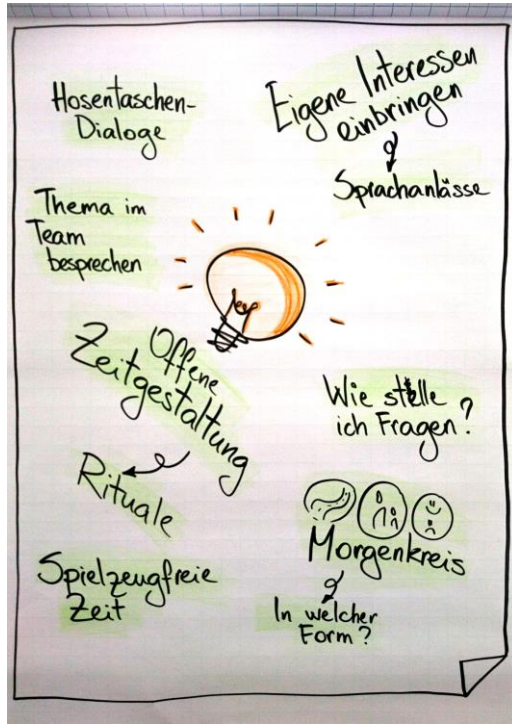 Hosentaschen-
Dialoge
Eigene Interessen
einbringen
Sprachanlässe
Thema im
Team
besprechen
Offene
Zeitgestaltung
Rituale
Wie stelle
ich Fragen?
Morgenkreis
In welcher
Form?
Spielzeugfreie
Zeit